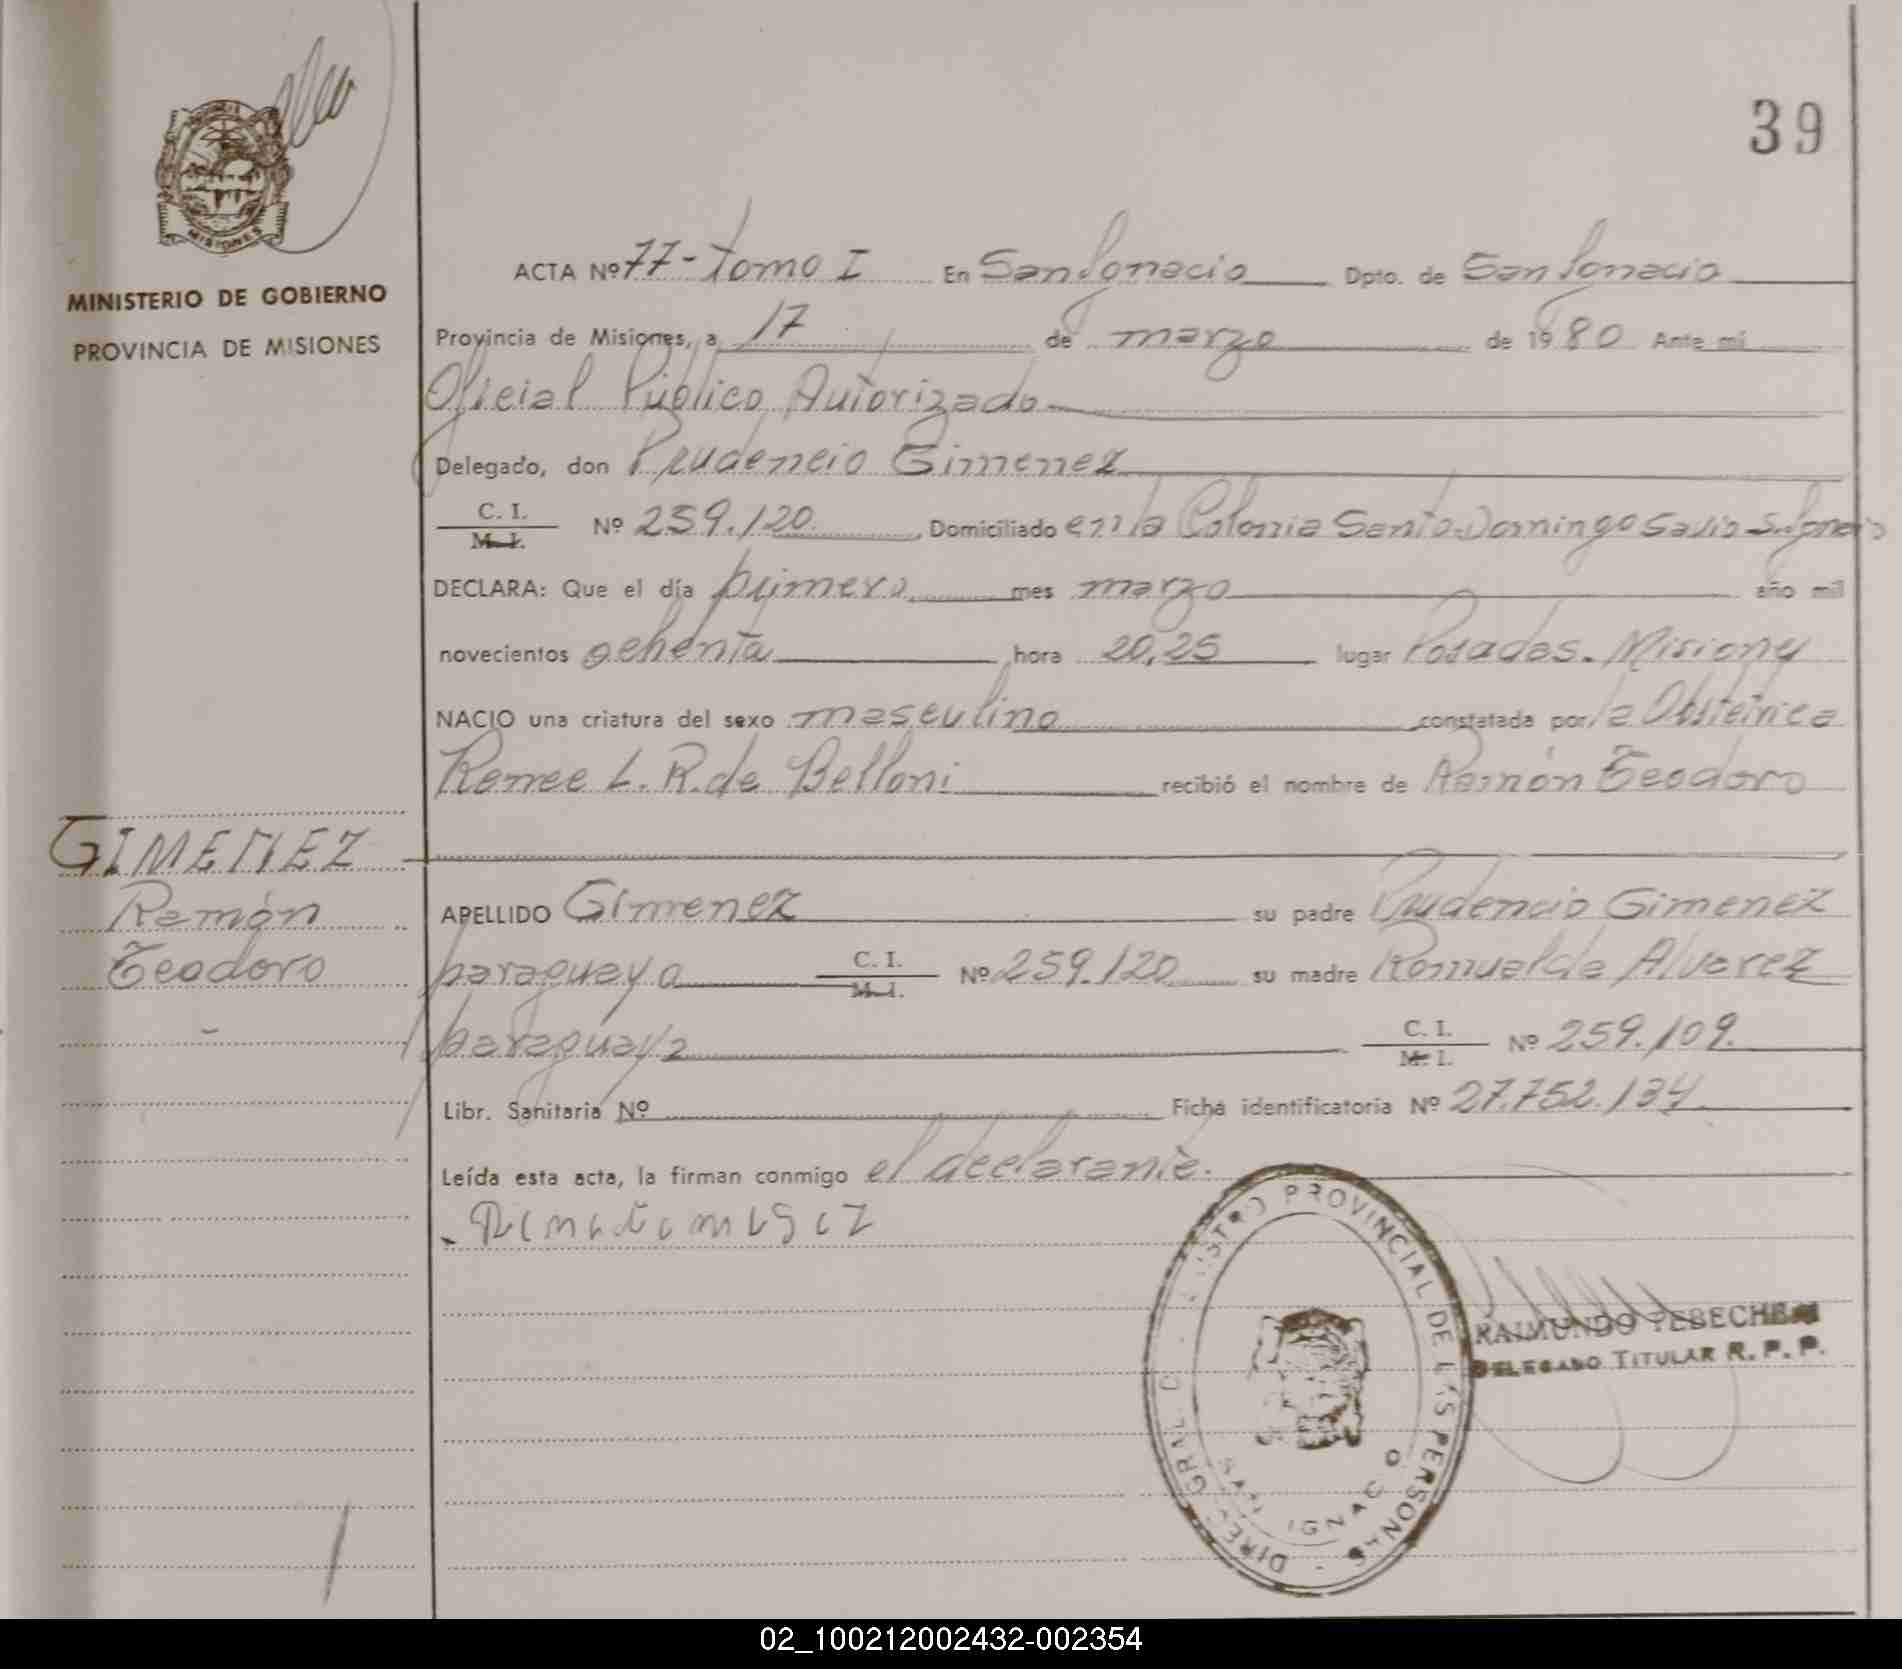 39
MISIONES
MINISTERIO DE GOBIERNO
PROVINCIA DE MISIONES
ACTA Nº 77 - Tomo I En San Ignacio Dpto. de San Ignacio
Provincia de Misiones, a 17 de marzo de 1980 Ante mí
Oficial Público Autorizado
Delegado, don Prudencio Gimenez
C. I.
M. I. Nº 259.120 Domiciliado en la Colonia Santo Domingo Savio S. Ignacio
DECLARA: Que el día primero mes marzo año mil
novecientos ochenta hora 20,25 lugar Posadas. Misiones
NACIO una criatura del sexo masculino constatada por la Obstétrica
Renee L. R. de Belloni recibió el nombre de Ramón Teodoro
GIMENEZ
Ramón
Teodoro
APELLIDO Gimenez su padre Prudencio Gimenez
paraguayo C. I.
M. I. Nº 259.120 su madre Romualda Alvarez
paraguaya C. I.
M. I. Nº 259.109.
Libr. Sanitaria Nº Ficha identificatoria Nº 27.752.134
Leída esta acta, la firman conmigo el declarante.
PROVINCIAL DE LAS PERSONAS
SAN IGNACIO
RAIMUNDO
DELEGADO TITULAR R. P. P.
02_100212002432-002354